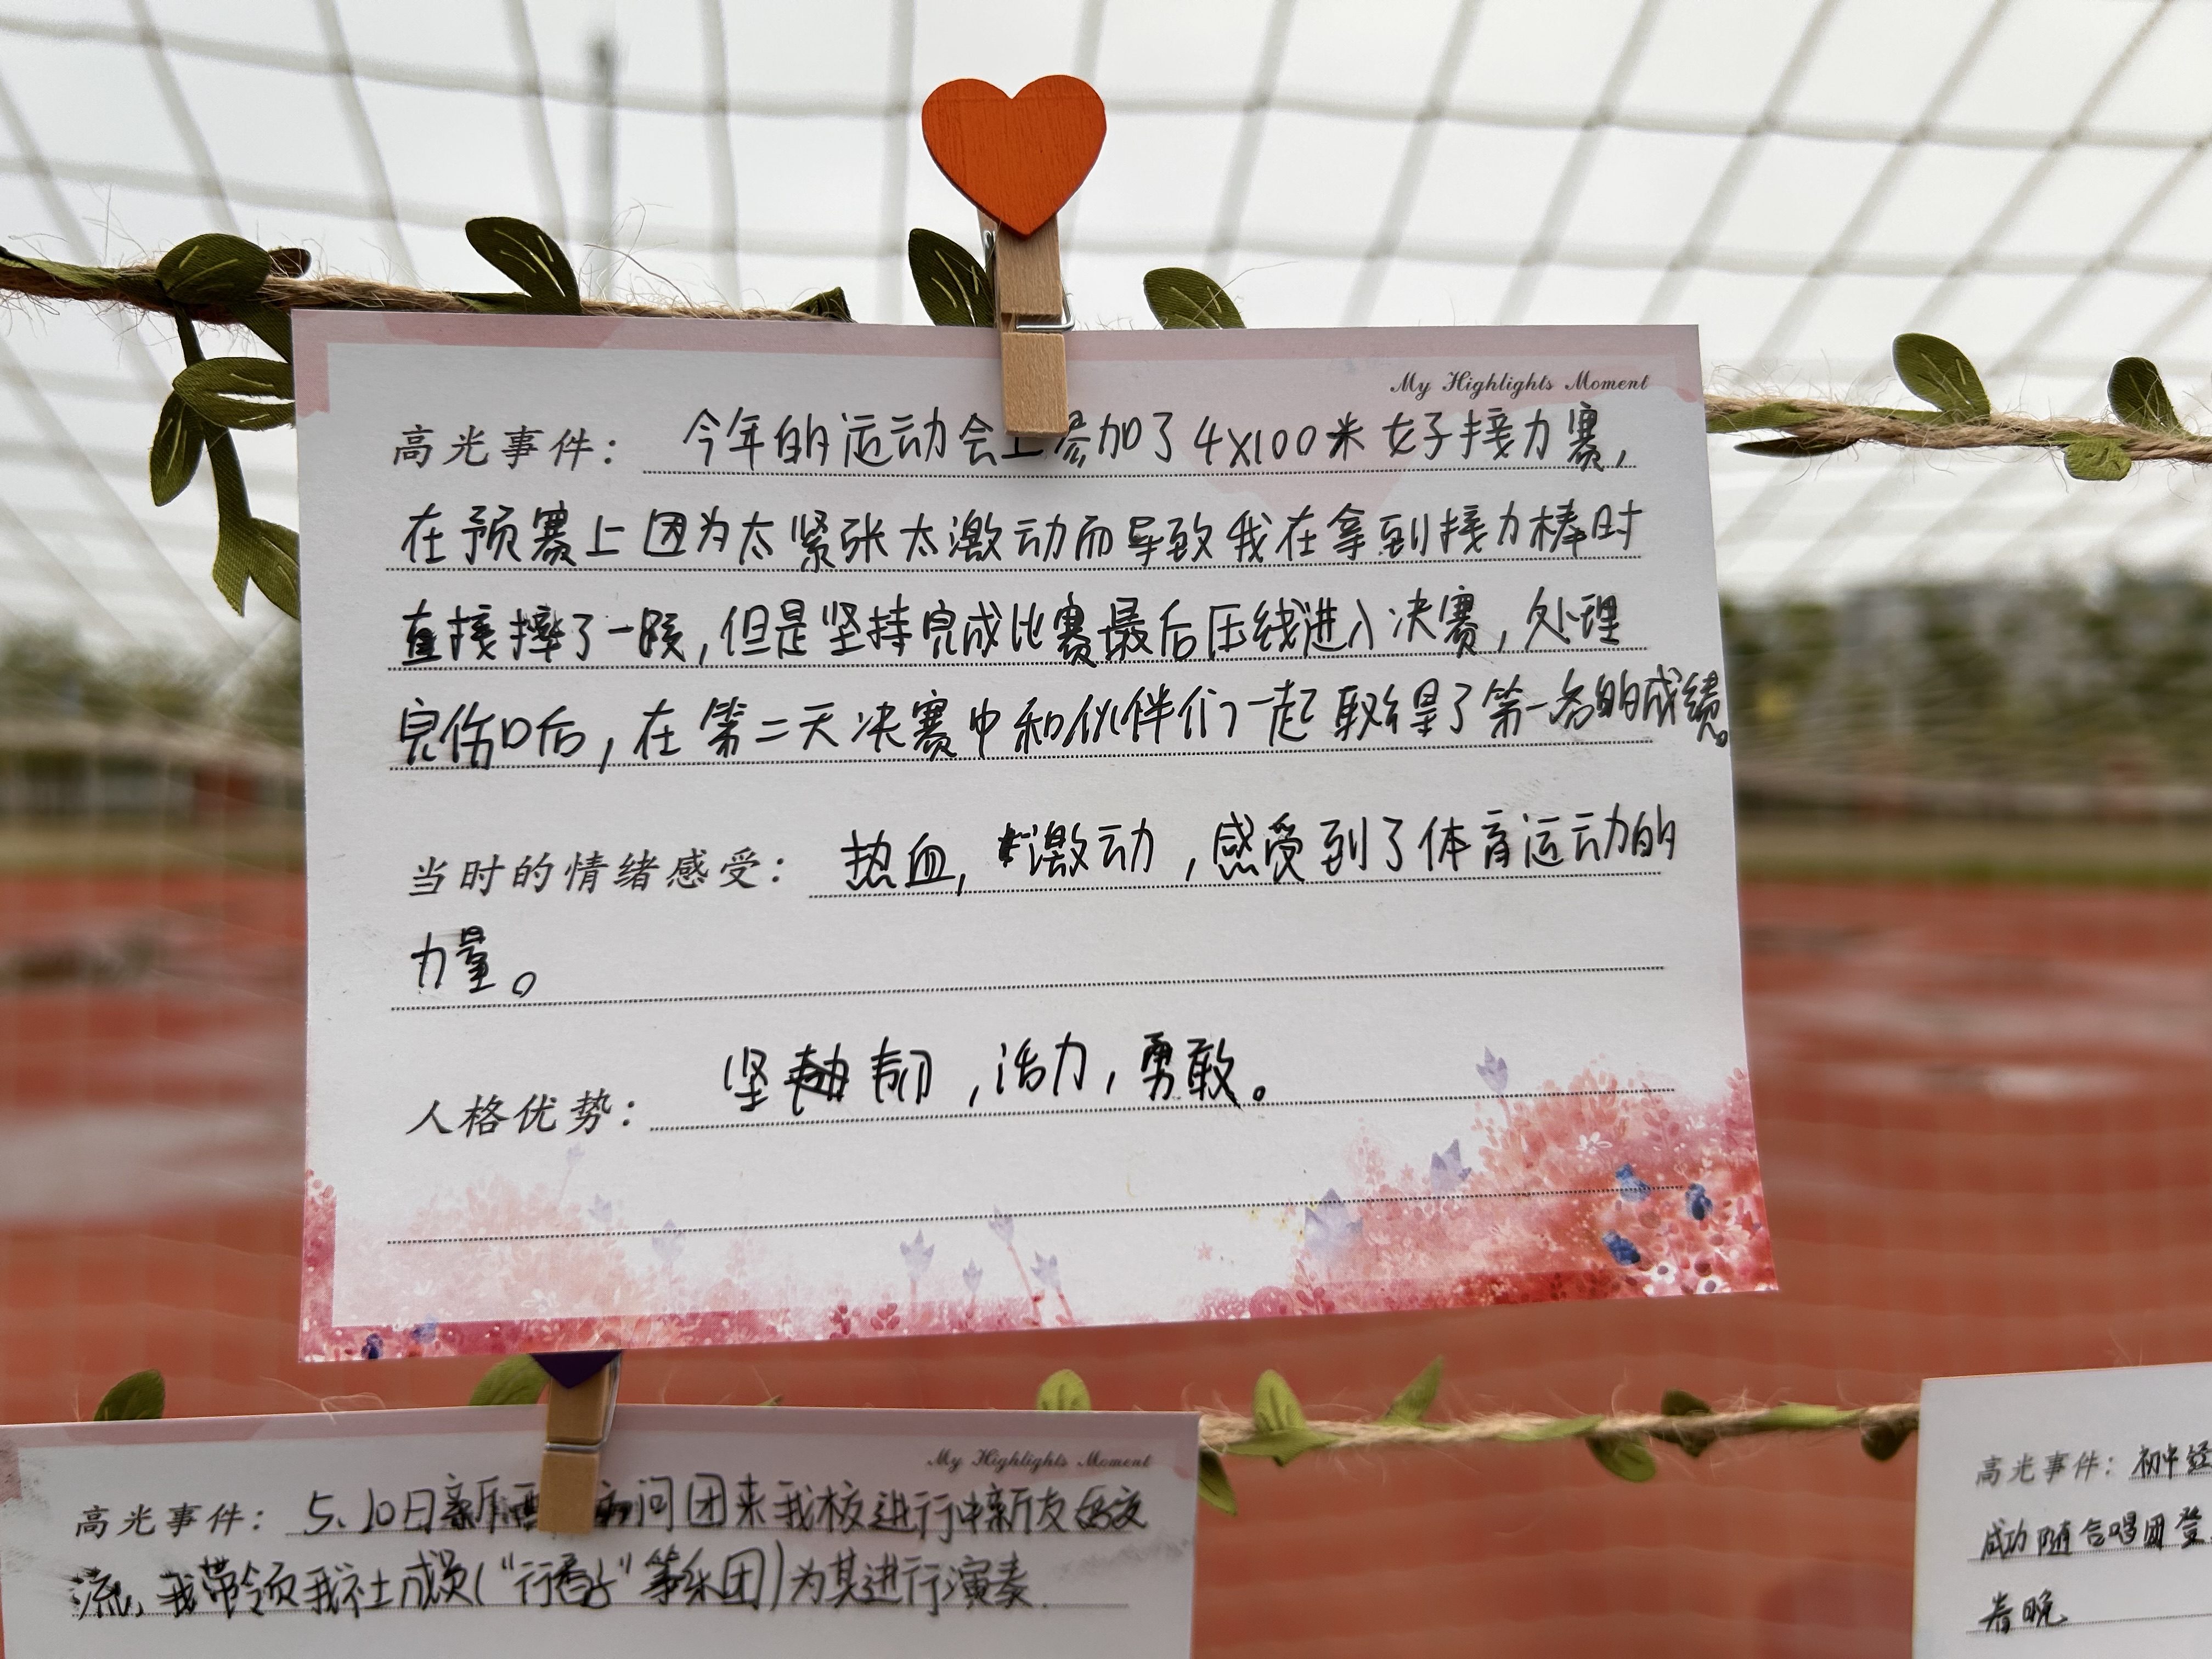 My Highlights Moment
高光事件： 今年的运动会上参加了4x100米女子接力赛，
在预赛上因为太紧张太激动而导致我在拿到接力棒时
直接摔了一跤，但是坚持完成比赛最后压线进入决赛，处理
完伤口后，在第二天决赛中和伙伴们一起取得了第一名的成绩。
当时的情绪感受： 热血，激动，感受到了体育运动的
力量。
人格优势： 坚韧，活力，勇敢。
My Highlights Moment
高光事件： 5.10日新 问团来我校进行中新友好交
流，我带领我社成员（“行香子”筝乐团）为其进行演奏.
高光事件： 初中
成功随合唱团登
春晚